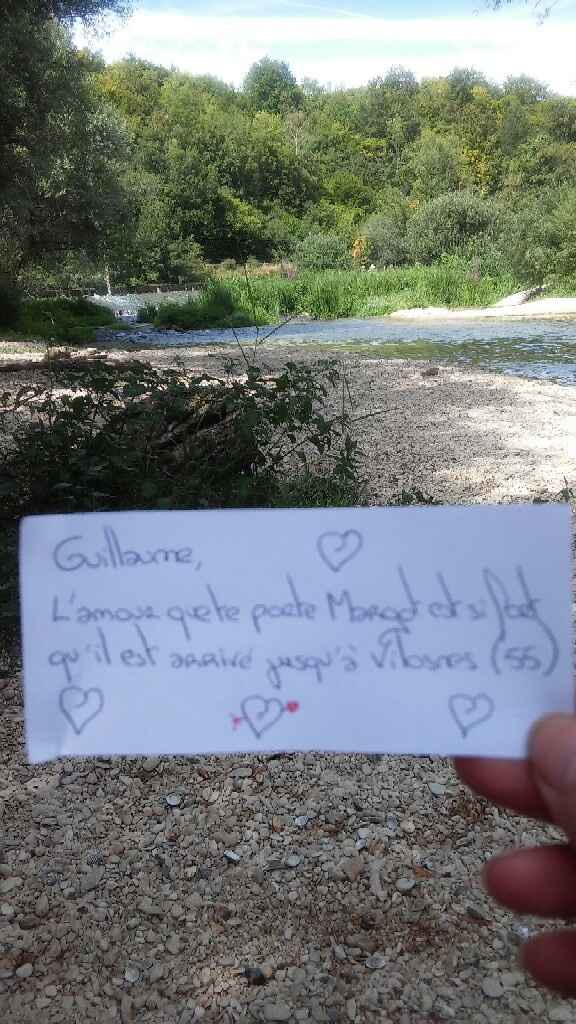 Guillaume,
L'amour que te porte Margot est si fort
qu'il est arrivé jusqu'à Vilosnes (55)